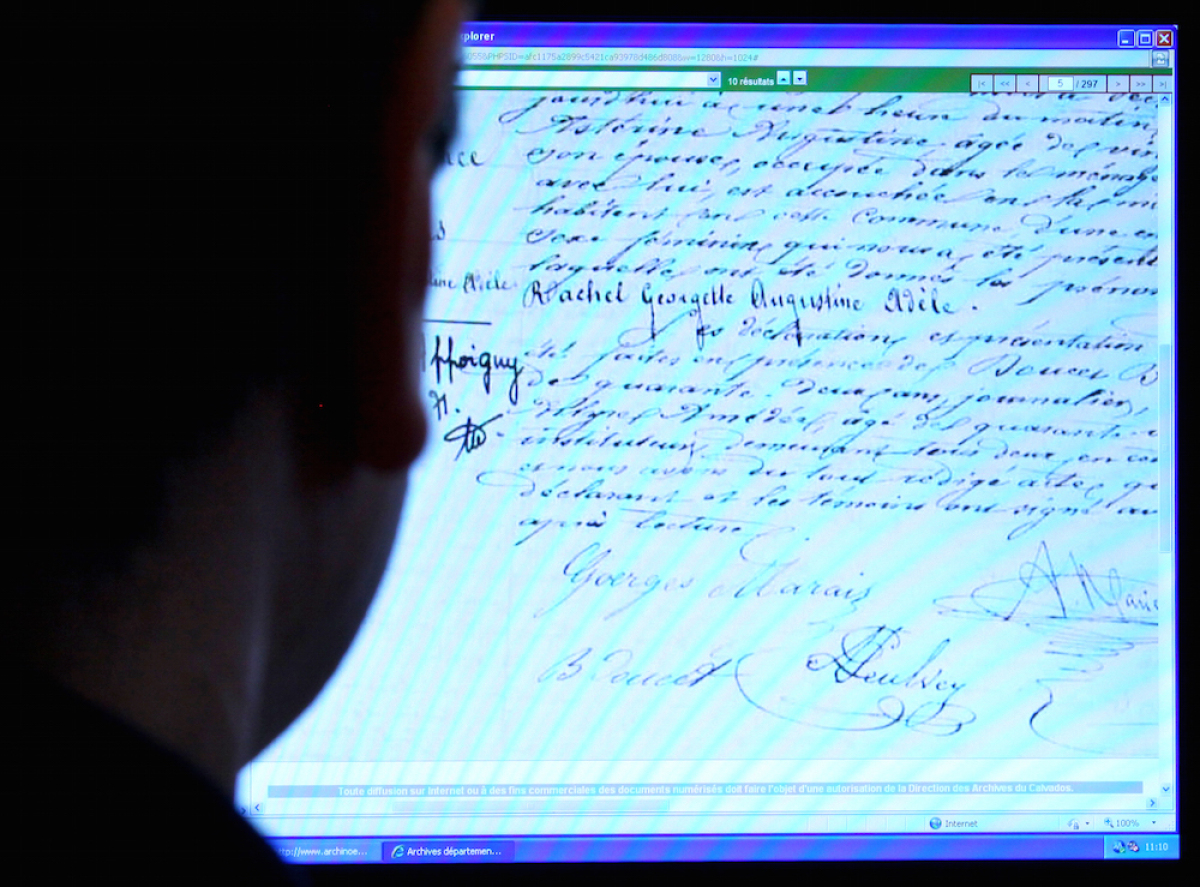 plorer
10 résultats
5 / 297
jourd'hui à une heure du matin
Augustine âgée de vin
son épouse, occupée dans le ménage
avec lui, est accouchée en sa m
habitent en cette commune, d'une e
sexe féminin qui nous a été présent
laquelle ont été donnés les prénom
Adèle
Rachel Georgette Augustine Adèle.
ppoigny
déclaration et présentation
été faites en présence de Doucet B
de quarante-deux ans, journalier,
Amédée, âgé de quarante
instituteur, demeurant tous deux en ce
et nous avons du tout rédigé acte, qu
déclarant et les témoins ont signé av
après lecture.
Georges Marais
A. Marie
B Doucet
Toute diffusion sur Internet ou à des fins commerciales des documents numérisés doit faire l'objet d'une autorisation de la Direction des Archives du Calvados.
Internet
100%
ttp://www.archinoe...
Archives départemen...
11:10